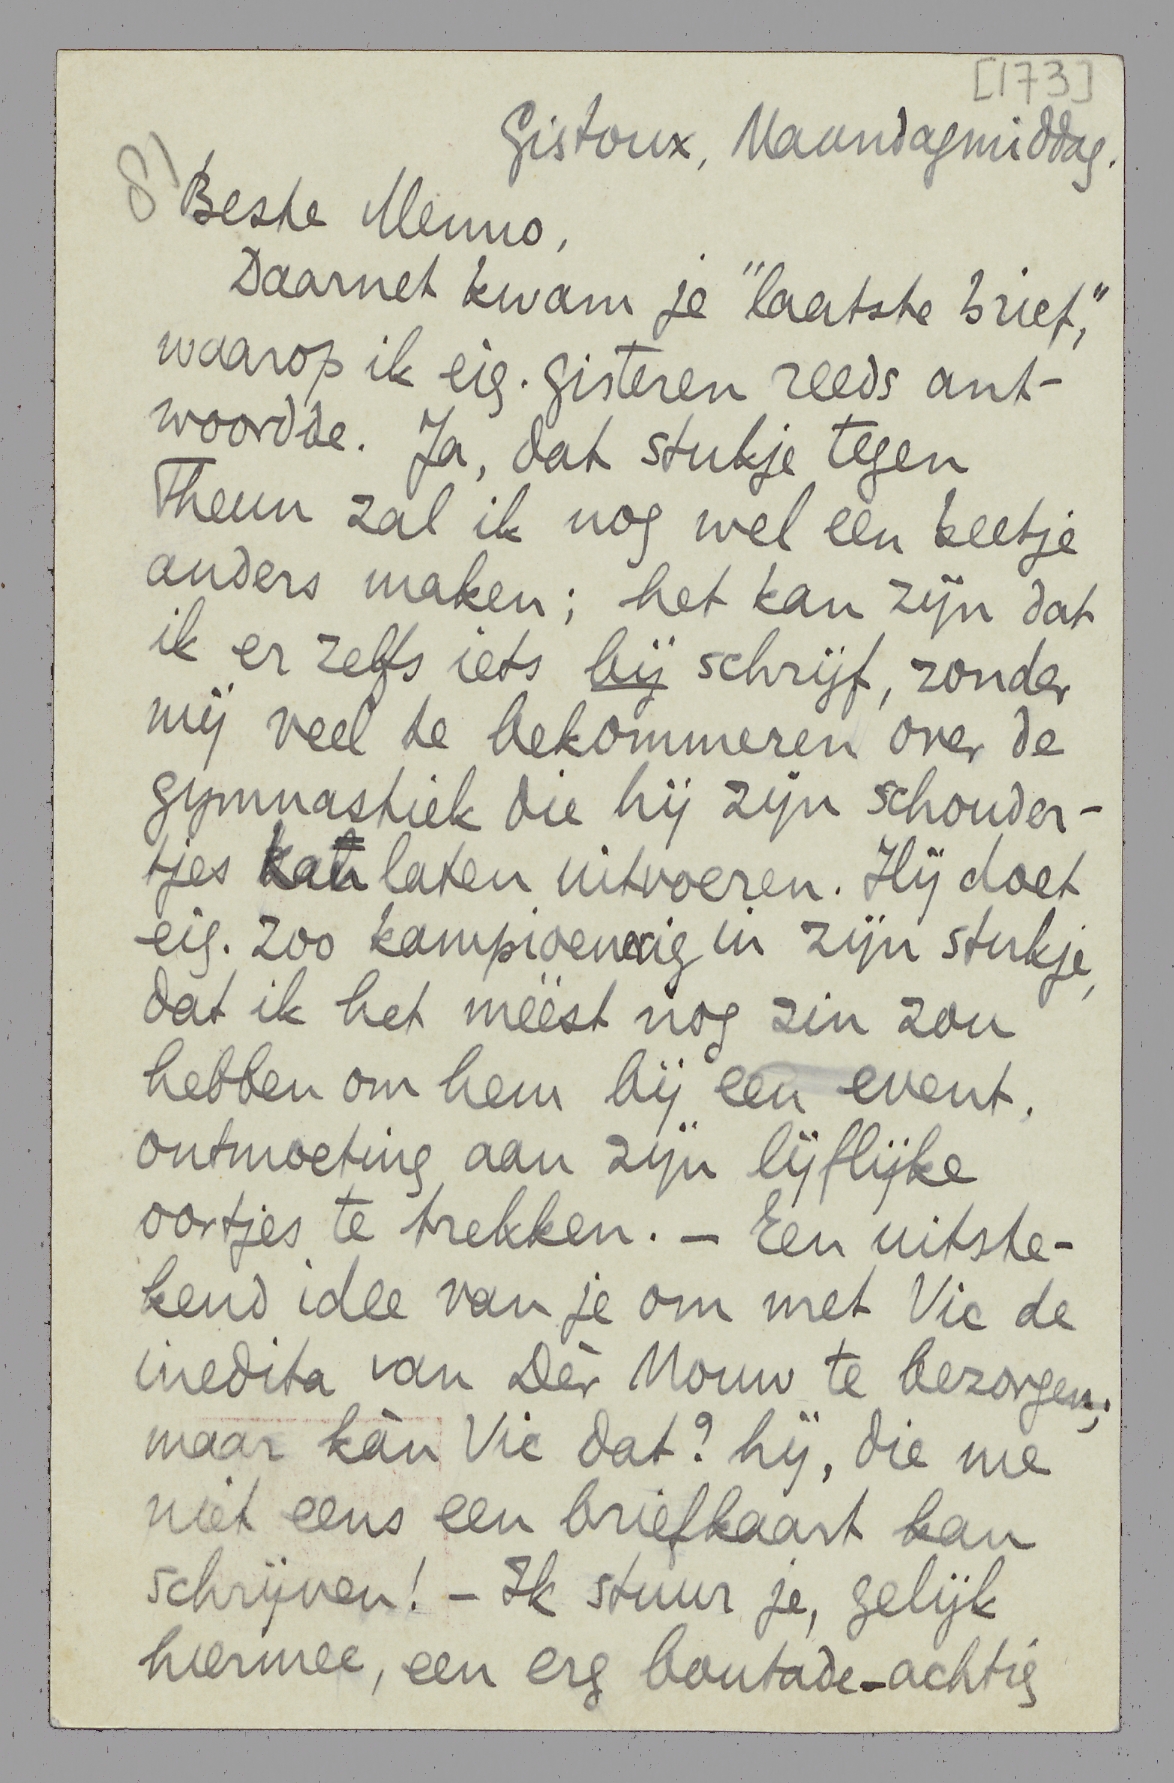 [173]
Gistoux, Maandagmiddag.
8)
Beste Menno,
Daarnet kwam je "laatste brief,"
waarop ik eig. gisteren reeds ant-
woordde. Ja, dat stukje tegen
Theun zal ik nog wel een beetje
anders maken; het kan zijn dat
ik er zelfs iets bij schrijf, zonder
mij veel te bekommeren over de
gymnastiek die hij zijn schouder-
tjes kan laten uitvoeren. Hij doet
eig. zoo kampioenerig in zijn stukje,
dat ik het méést nog zin zou
hebben om hem bij een event.
ontmoeting aan zijn lijflijke
oortjes te trekken. — Een uitste-
kend idee van je om met Vic de
inedita van Dèr Mouw te bezorgen;
maar kàn Vic dat? hij, die me
niet eens een briefkaart kan
schrijven! — Ik stuur je, gelijk
hiermee, een erg boutade-achtig